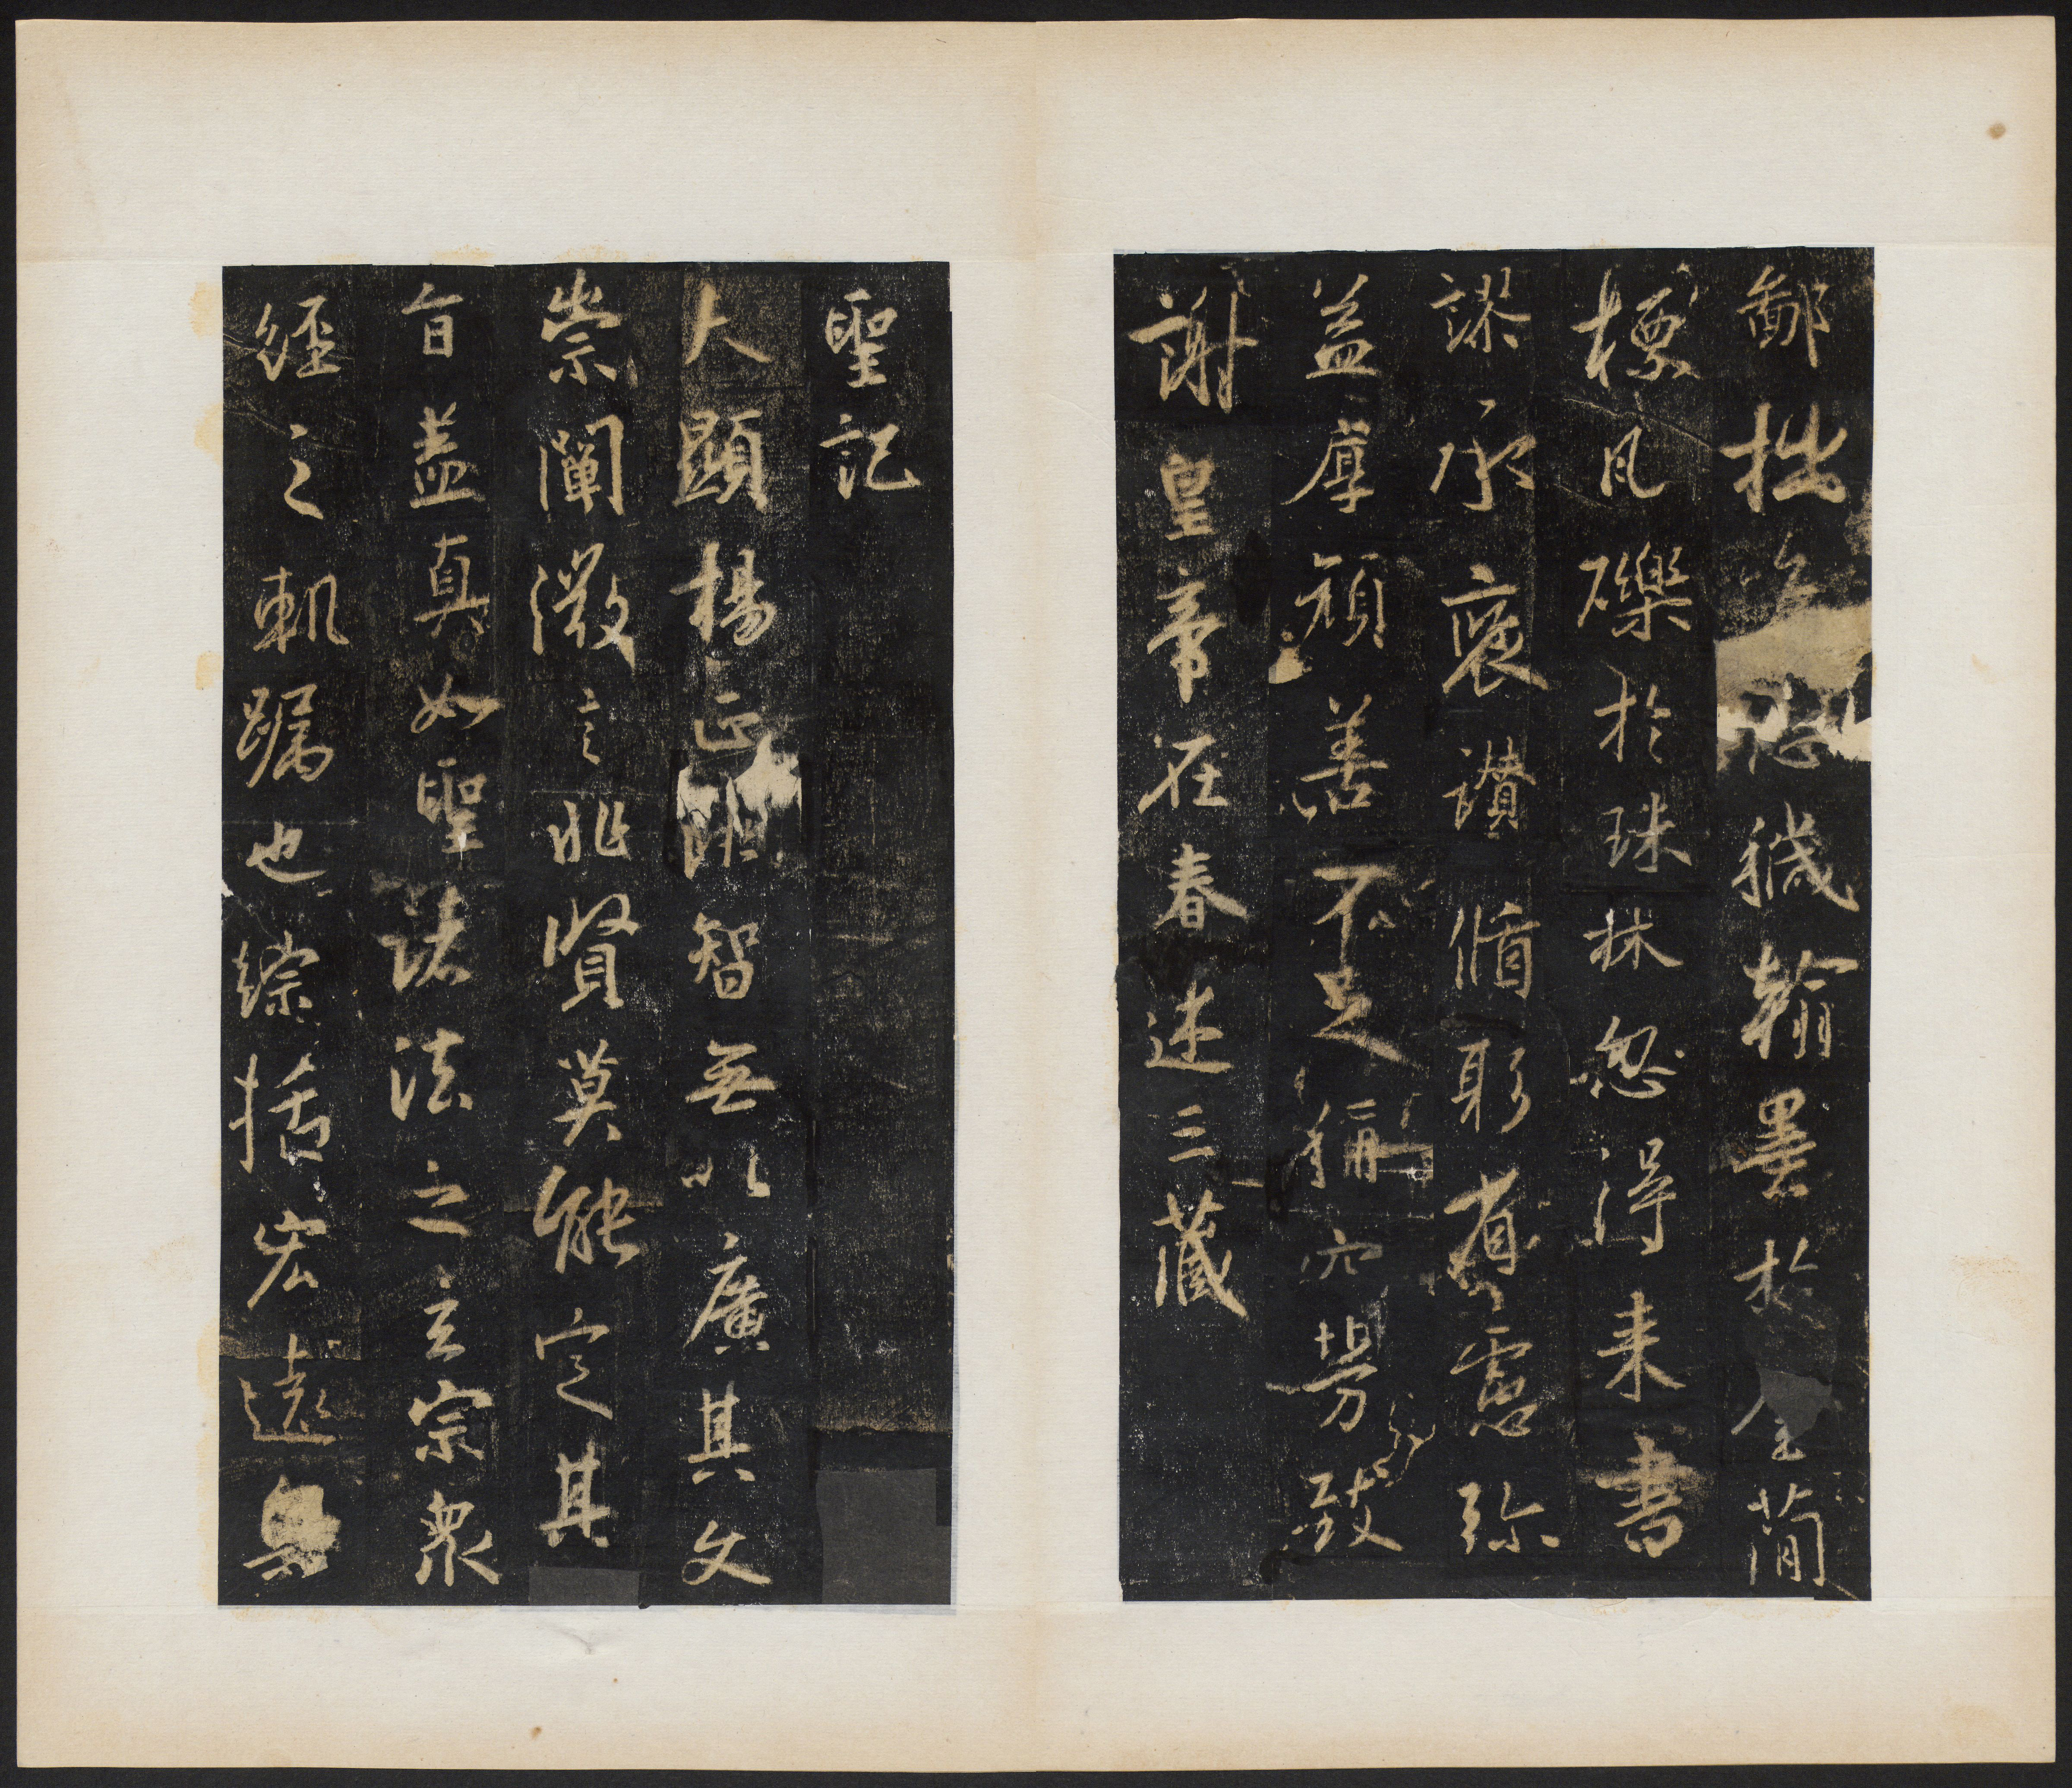 鄙拙恐穢翰墨於金簡
標瓦礫於珠林忽得來書
謬承褒讚循躬省慮彌
益厚顏善不足稱空勞致
謝皇帝在春述三藏
聖記
夫顯揚正非智無以廣其文
崇闡微言非賢莫能定其
旨蓋真如聖諸法之玄宗眾
經之軌躅也綜括宏遠奧